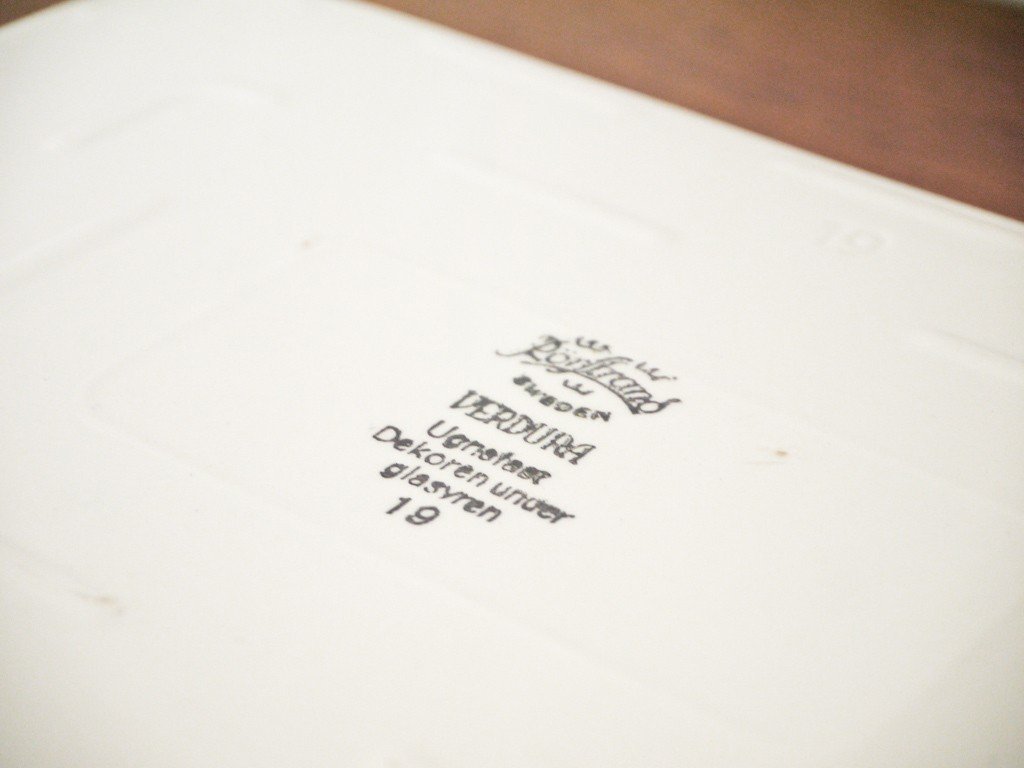 Rörstrand
SWEDEN
VERDURA
Ugnsfast
Dekoren under
glasyren
19